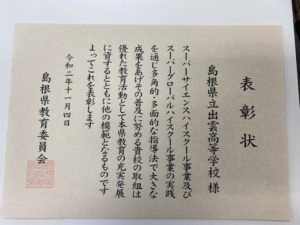 表彰状
島根県立出雲高等学校 様
スーパーサイエンスハイスクール事業及び
スーパーグローバルハイスクール事業の実践
を通じ多角的・多面的な指導法で大きな
成果をあげその普及に努める貴校の取組は
優れた教育活動として本県教育の充実発展
に資するとともに他の模範となるものです
よってこれを表彰します
令和二年十一月四日
島根県教育委員会